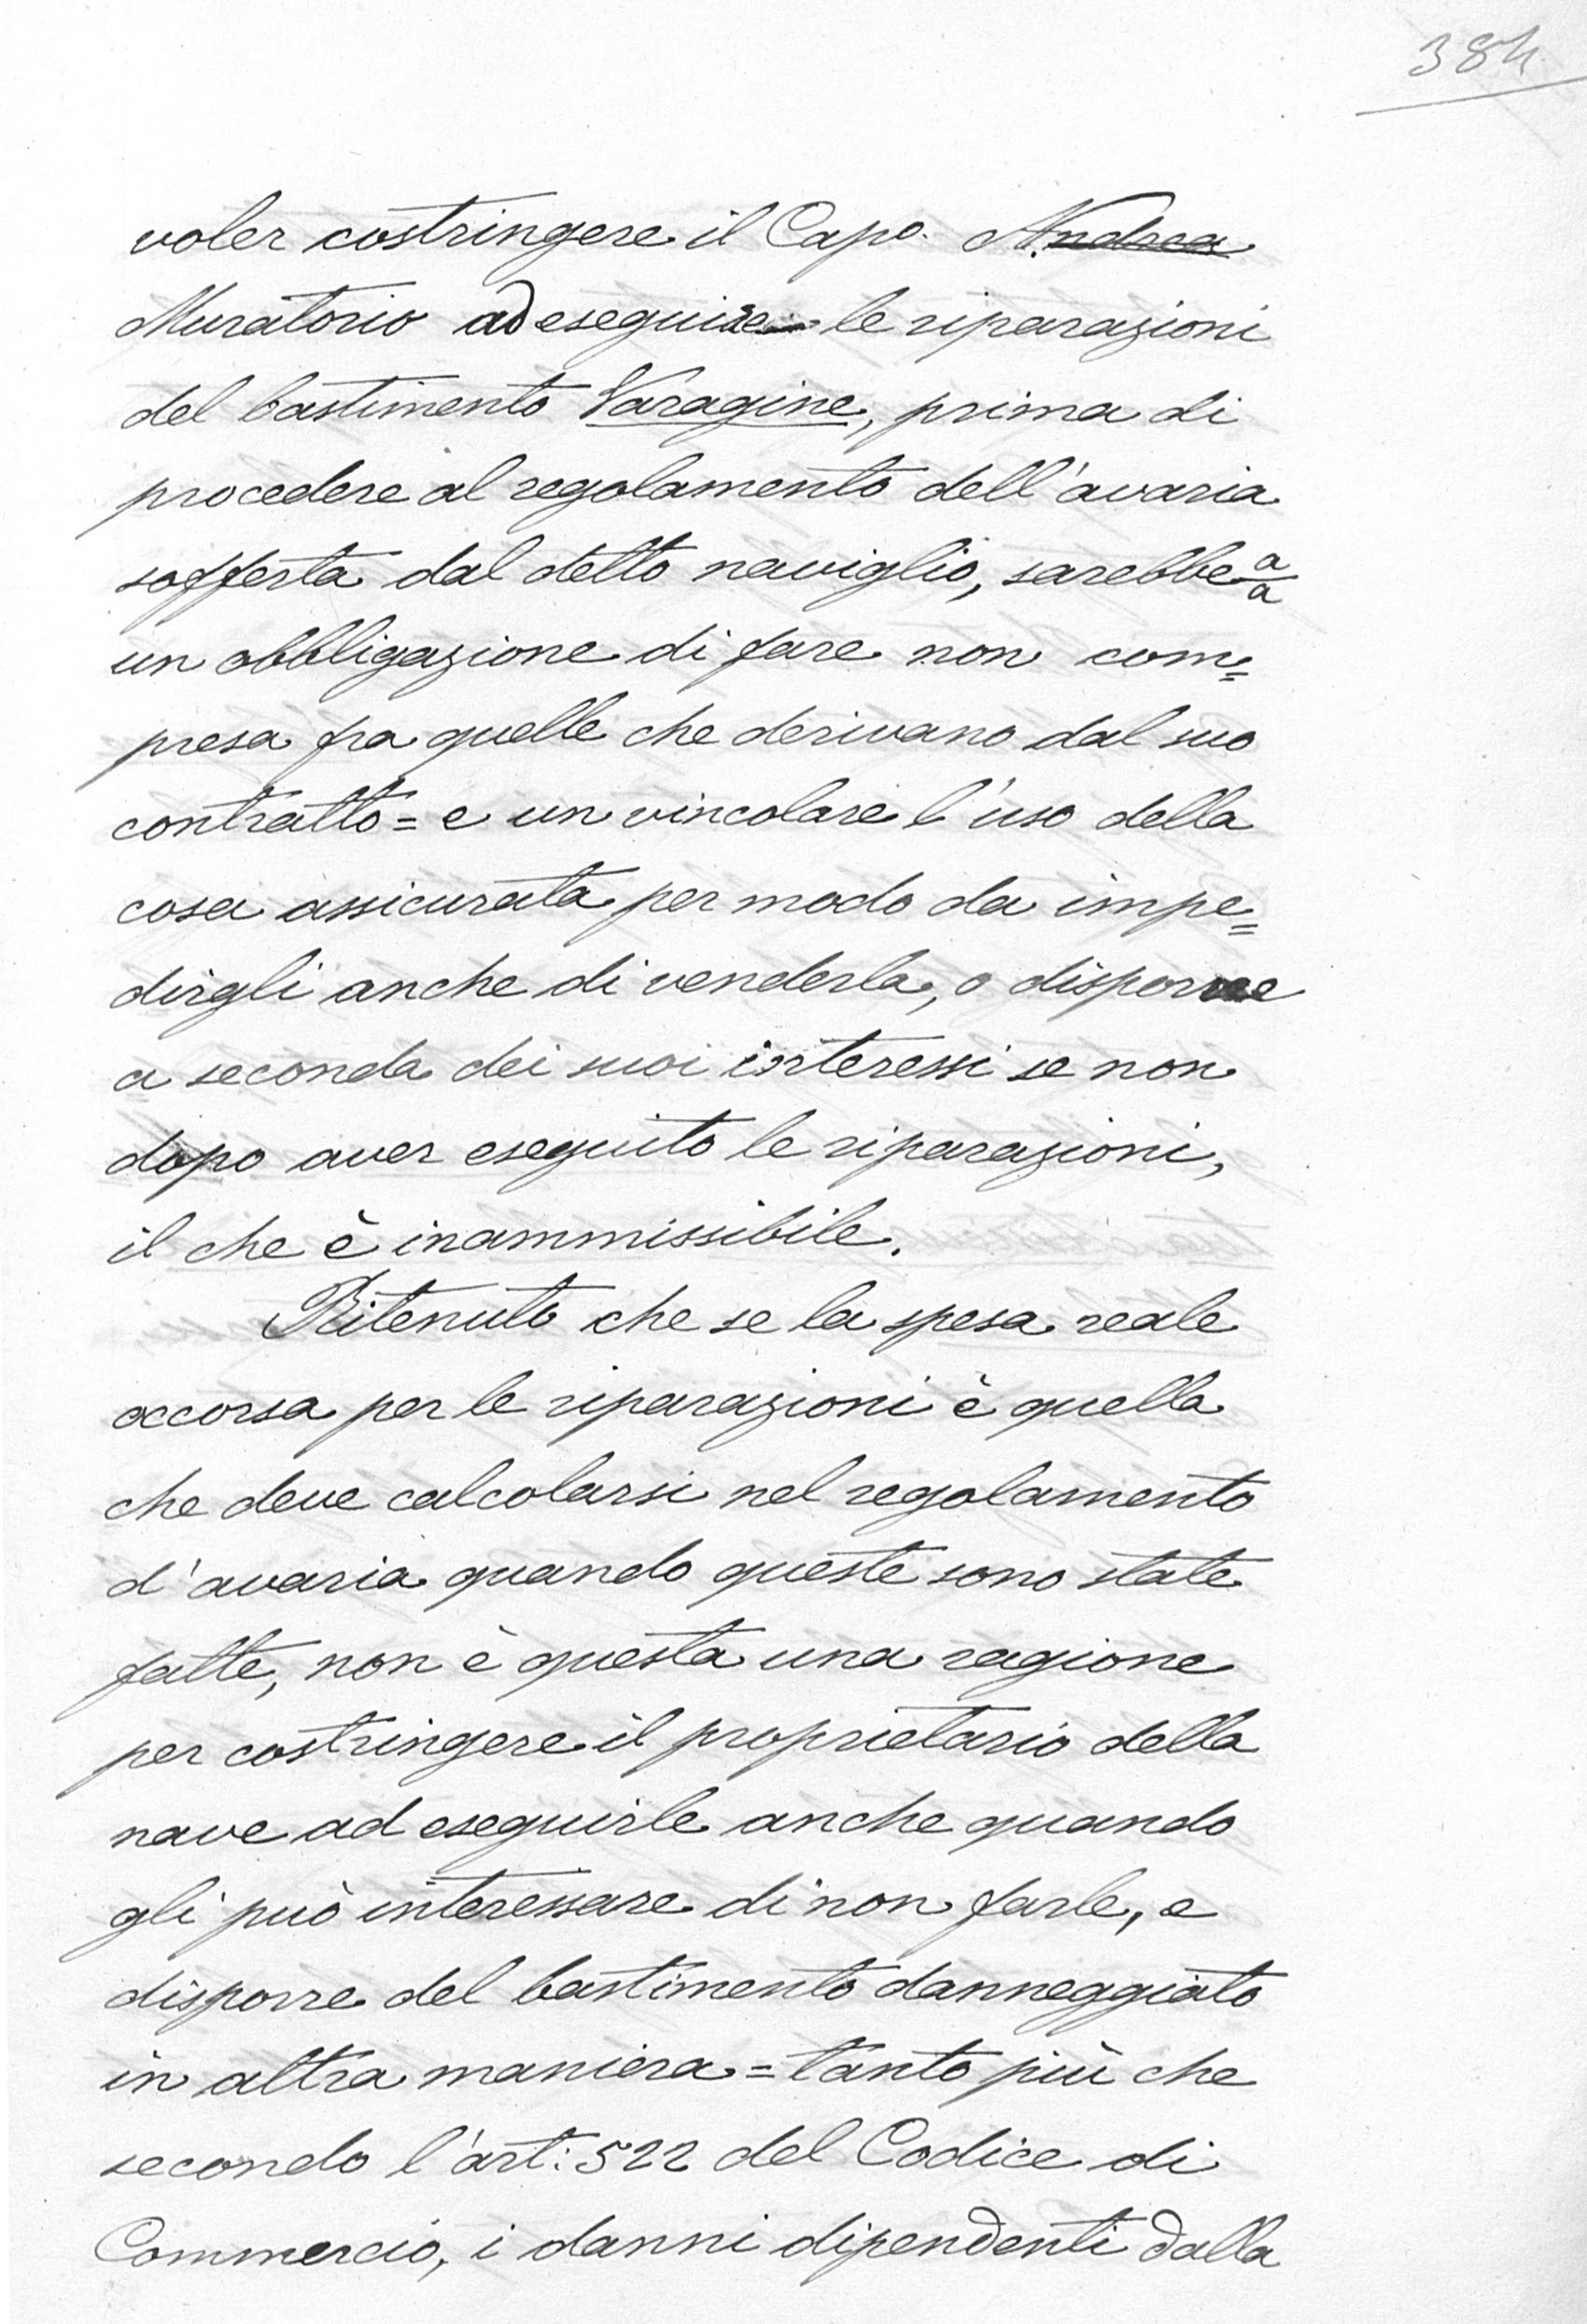 384
voler costringere il Capo. A. Andrea
Muratorio ad eseguire le riparazioni
del bastimento Varagine, prima di
procedere al regolamento dell'avaria
sofferta dal detto naviglio, sarebbe a/a
un obbligazione di fare non com=
presa fra quelle che derivano dal suo
contratto = e un vincolare l'uso della
cosa assicurata per modo da impe=
dirgli anche di venderla, o disporne
a seconda dei suoi interessi se non
dopo aver eseguito le riparazioni,
il che è inammissibile.
Ritenuto che se la spesa reale
occorsa per le riparazioni è quella
che deve calcolarsi nel regolamento
d'avaria quando queste sono state
fatte, non è questa una ragione
per costringere il proprietario della
nave ad eseguirle anche quando
gli può interessare di non farle, e
disporre del bastimento danneggiato
in altra maniera = tanto più che
secondo l'art: 522 del Codice di
Commercio, i danni dipendenti dalla